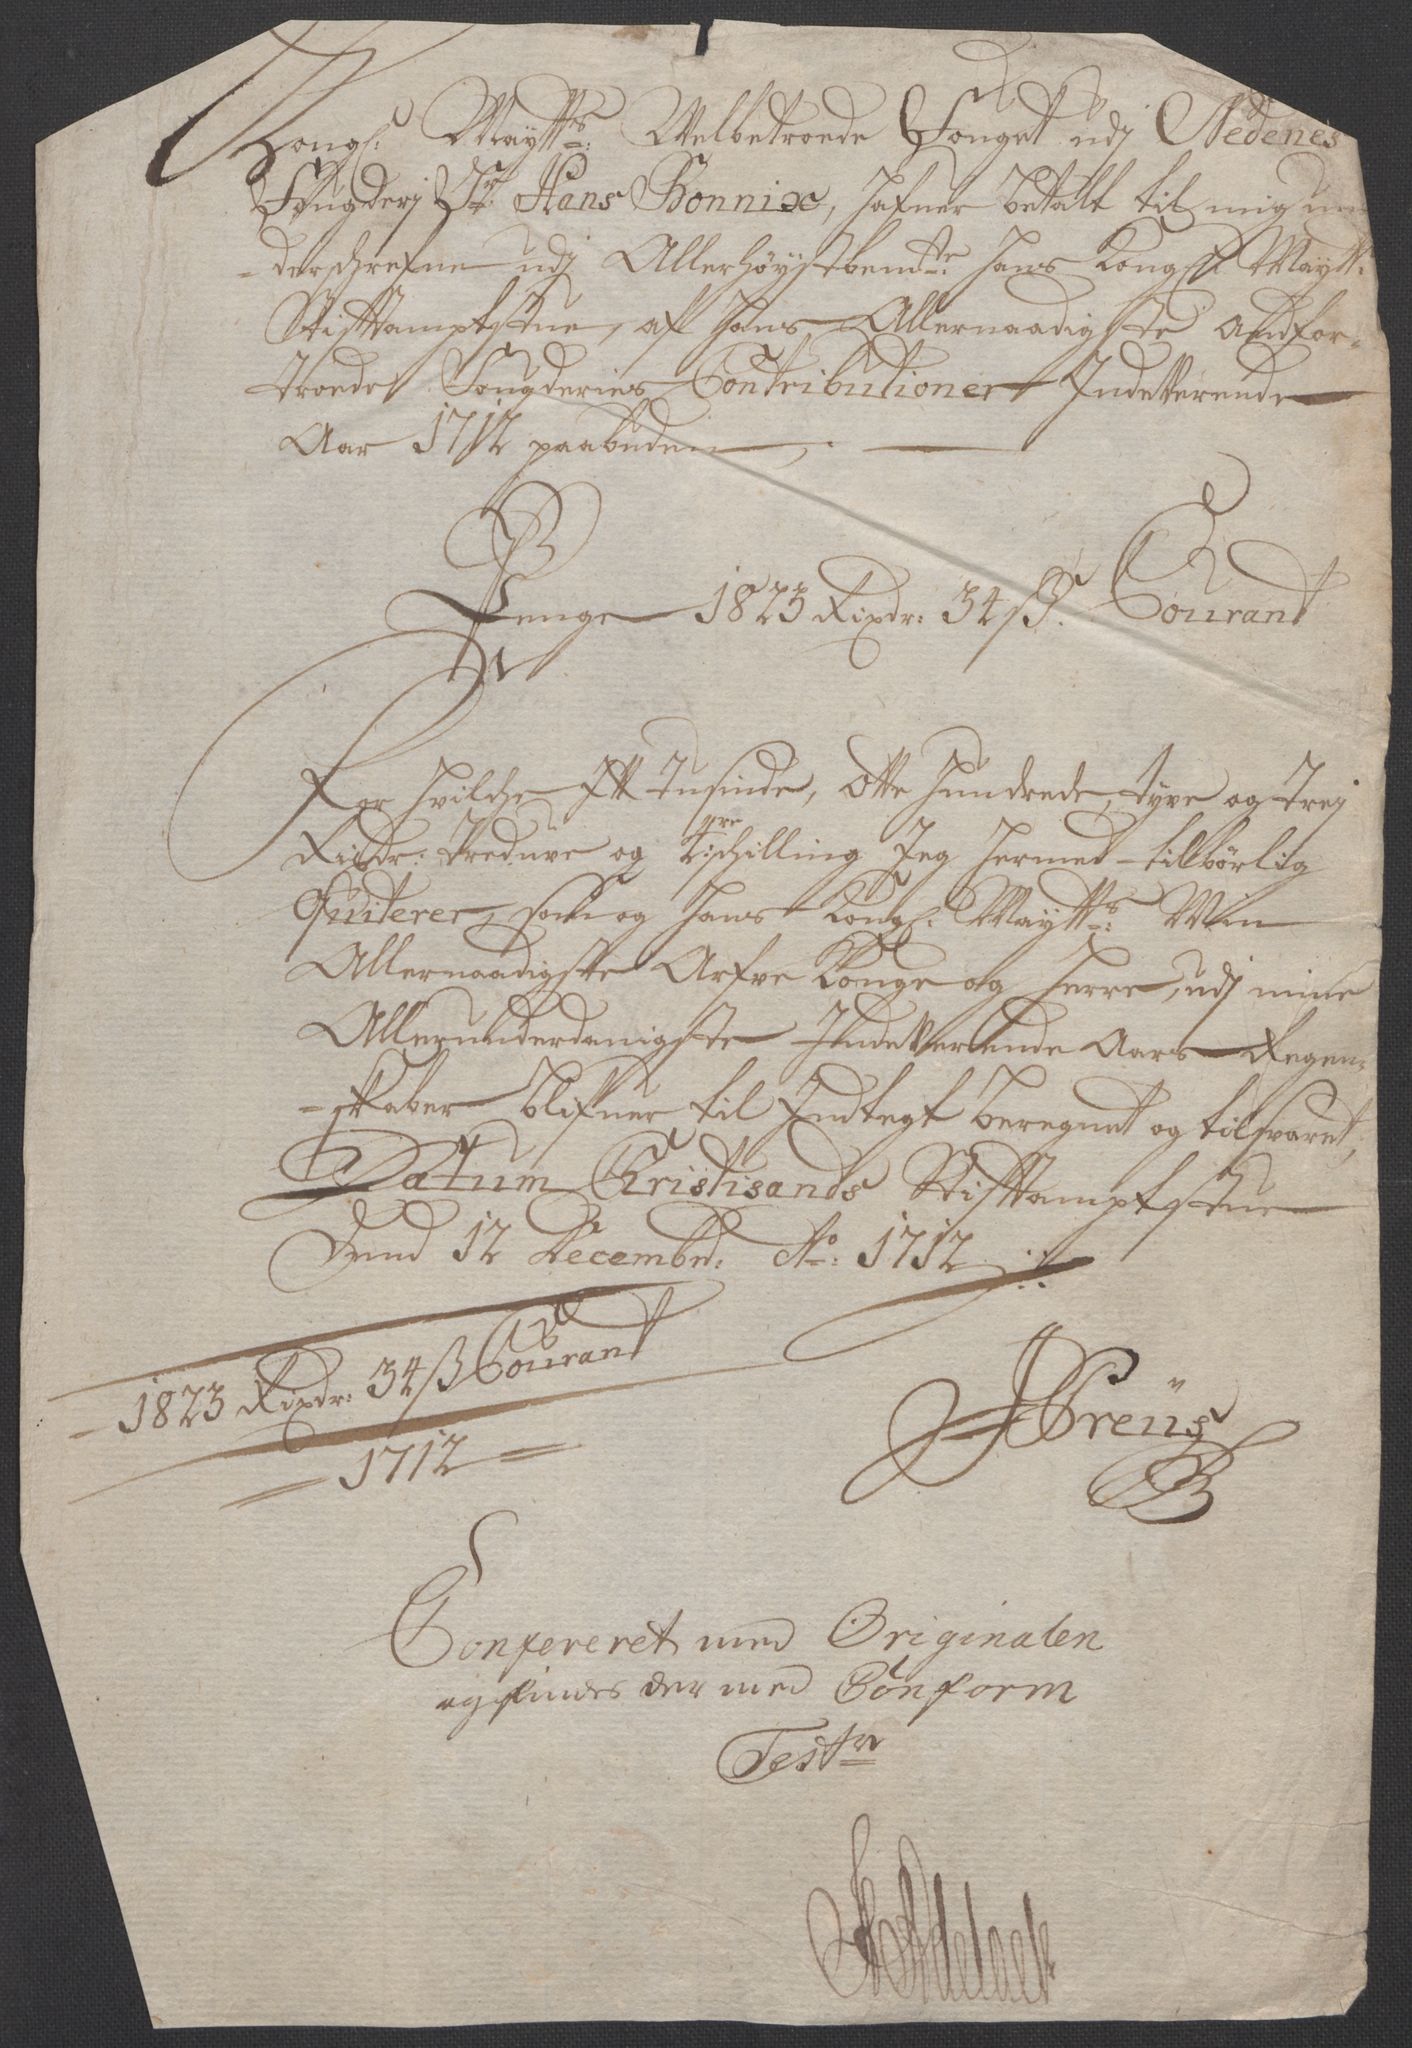 Kongl: Maytts: Welbetroede Fouget udj Nedenes
Fougderj Sr. Hans Bonnix, hafuer betalt til mig un
-derschrefne udj Allerhøystbemte: hans Kongl Maytt:
Stiftamptstue, af hans Allernaadigste anfor-
troede Fougderies Contributioner Indeverende
Aar 1712 paabuden
Penge 1823 Rixdr: 34 ß. Courant
For hvilche Itt tusinde, Otte hundrede, tyve og trej
Rixdr: tredive og fire schilling Jeg hermed tilbørlig
Qviterer, som og hans Kongl: Maytts: Min
Allernaadigste Arfve Konge og Herre, udj mine
Allerunderdanigste Indeverende Aars Regen-
-skaber blifuer til Indtegt beregnet og tilsvaret,
Datum Christisands Stiftamptstue
Dend 12 Decembr: Ao: 1712
1823 Rixdr: 34 ß Courant
1712
Confereret med Originalen
og findes der med Conform